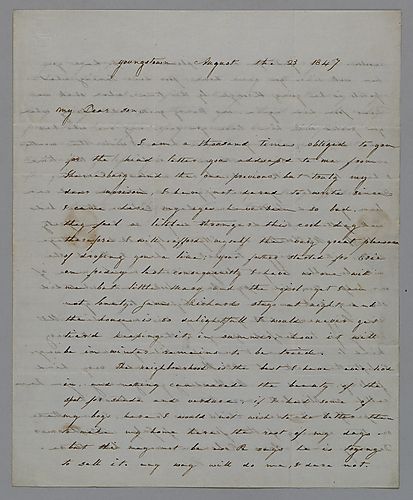 Youngstown August the 23 1847
My Dear son
I am a thousand times obliged to you
for the kind letters you addressed to me from
and the one previous but truly my
dear I have not dared to write since
I came here my eyes have been so bad.
they feel a little stronger this cool day
therefore I will afford myself the very great pleasure
of dropping you a line, your father started for Erie
on friday last consequently I have no one with
me but little Mary and the girl yet I am
not lonely James Richards stays at night, and
the house is so delightfull I would never get
tiard keeping it in summer, how it will
be in winter remains to be tried.
The neighbourhood is the best I have ever lived
in, and nothing can exceede the beauty of the
spot for shade and verdure, if I had some of
my boys here I would not wish to do better than
to make my home here the rest of my days
but this may not be as R says he is trying
to sell it. any way will do me, I dare not